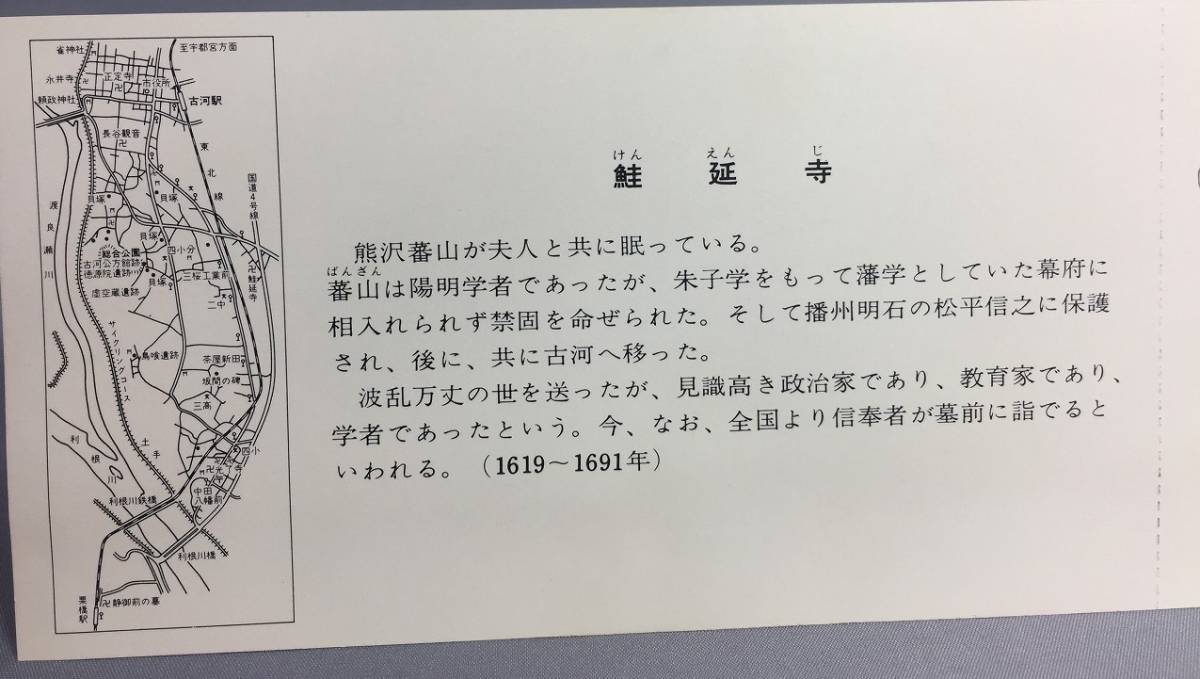 雀神社
至宇都宮方面
永井寺
正定寺
市役所
頼政神社
古河駅
長谷観音
東北線
国道4号線
渡良瀬川
貝塚
貝塚
貝塚
四小分
総合公園
古河公方館跡
徳源院遺跡
貝塚
三桜工業前
卍鮭延寺
虚空蔵遺跡
二中
サイクリングコース
鳥喰遺跡
茶屋新田
坂間の碑
三高
土手
利根川
四小
光了寺
中田
八幡前
利根川鉄橋
利根川橋
栗橋駅
卍静御前の墓
けん えん じ
鮭延寺
熊沢蕃山が夫人と共に眠っている。
ばんざん
蕃山は陽明学者であったが、朱子学をもって藩学としていた幕府に
相入れられず禁固を命ぜられた。そして播州明石の松平信之に保護
され、後に、共に古河へ移った。
波乱万丈の世を送ったが、見識高き政治家であり、教育家であり、
学者であったという。今、なお、全国より信奉者が墓前に詣でると
いわれる。(1619~1691年)